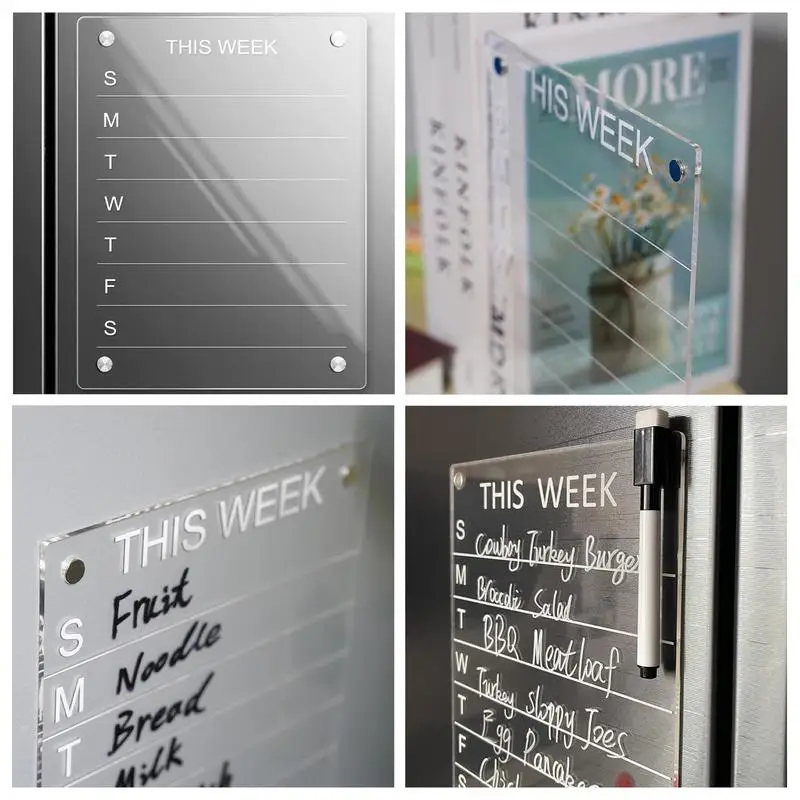 THIS WEEK
S
M
T
W
T
F
S
MORE
HIS WEEK
KINFOLK
KINFOLK
THIS WEEK
S Fruit
M Noodle
T Bread
Milk
THIS WEEK
S Cowboy Turkey Burger
M Broccoli Salad
T BBQ Meatloaf
W Turkey Sloppy Joes
T Egg Pancakes
F
S